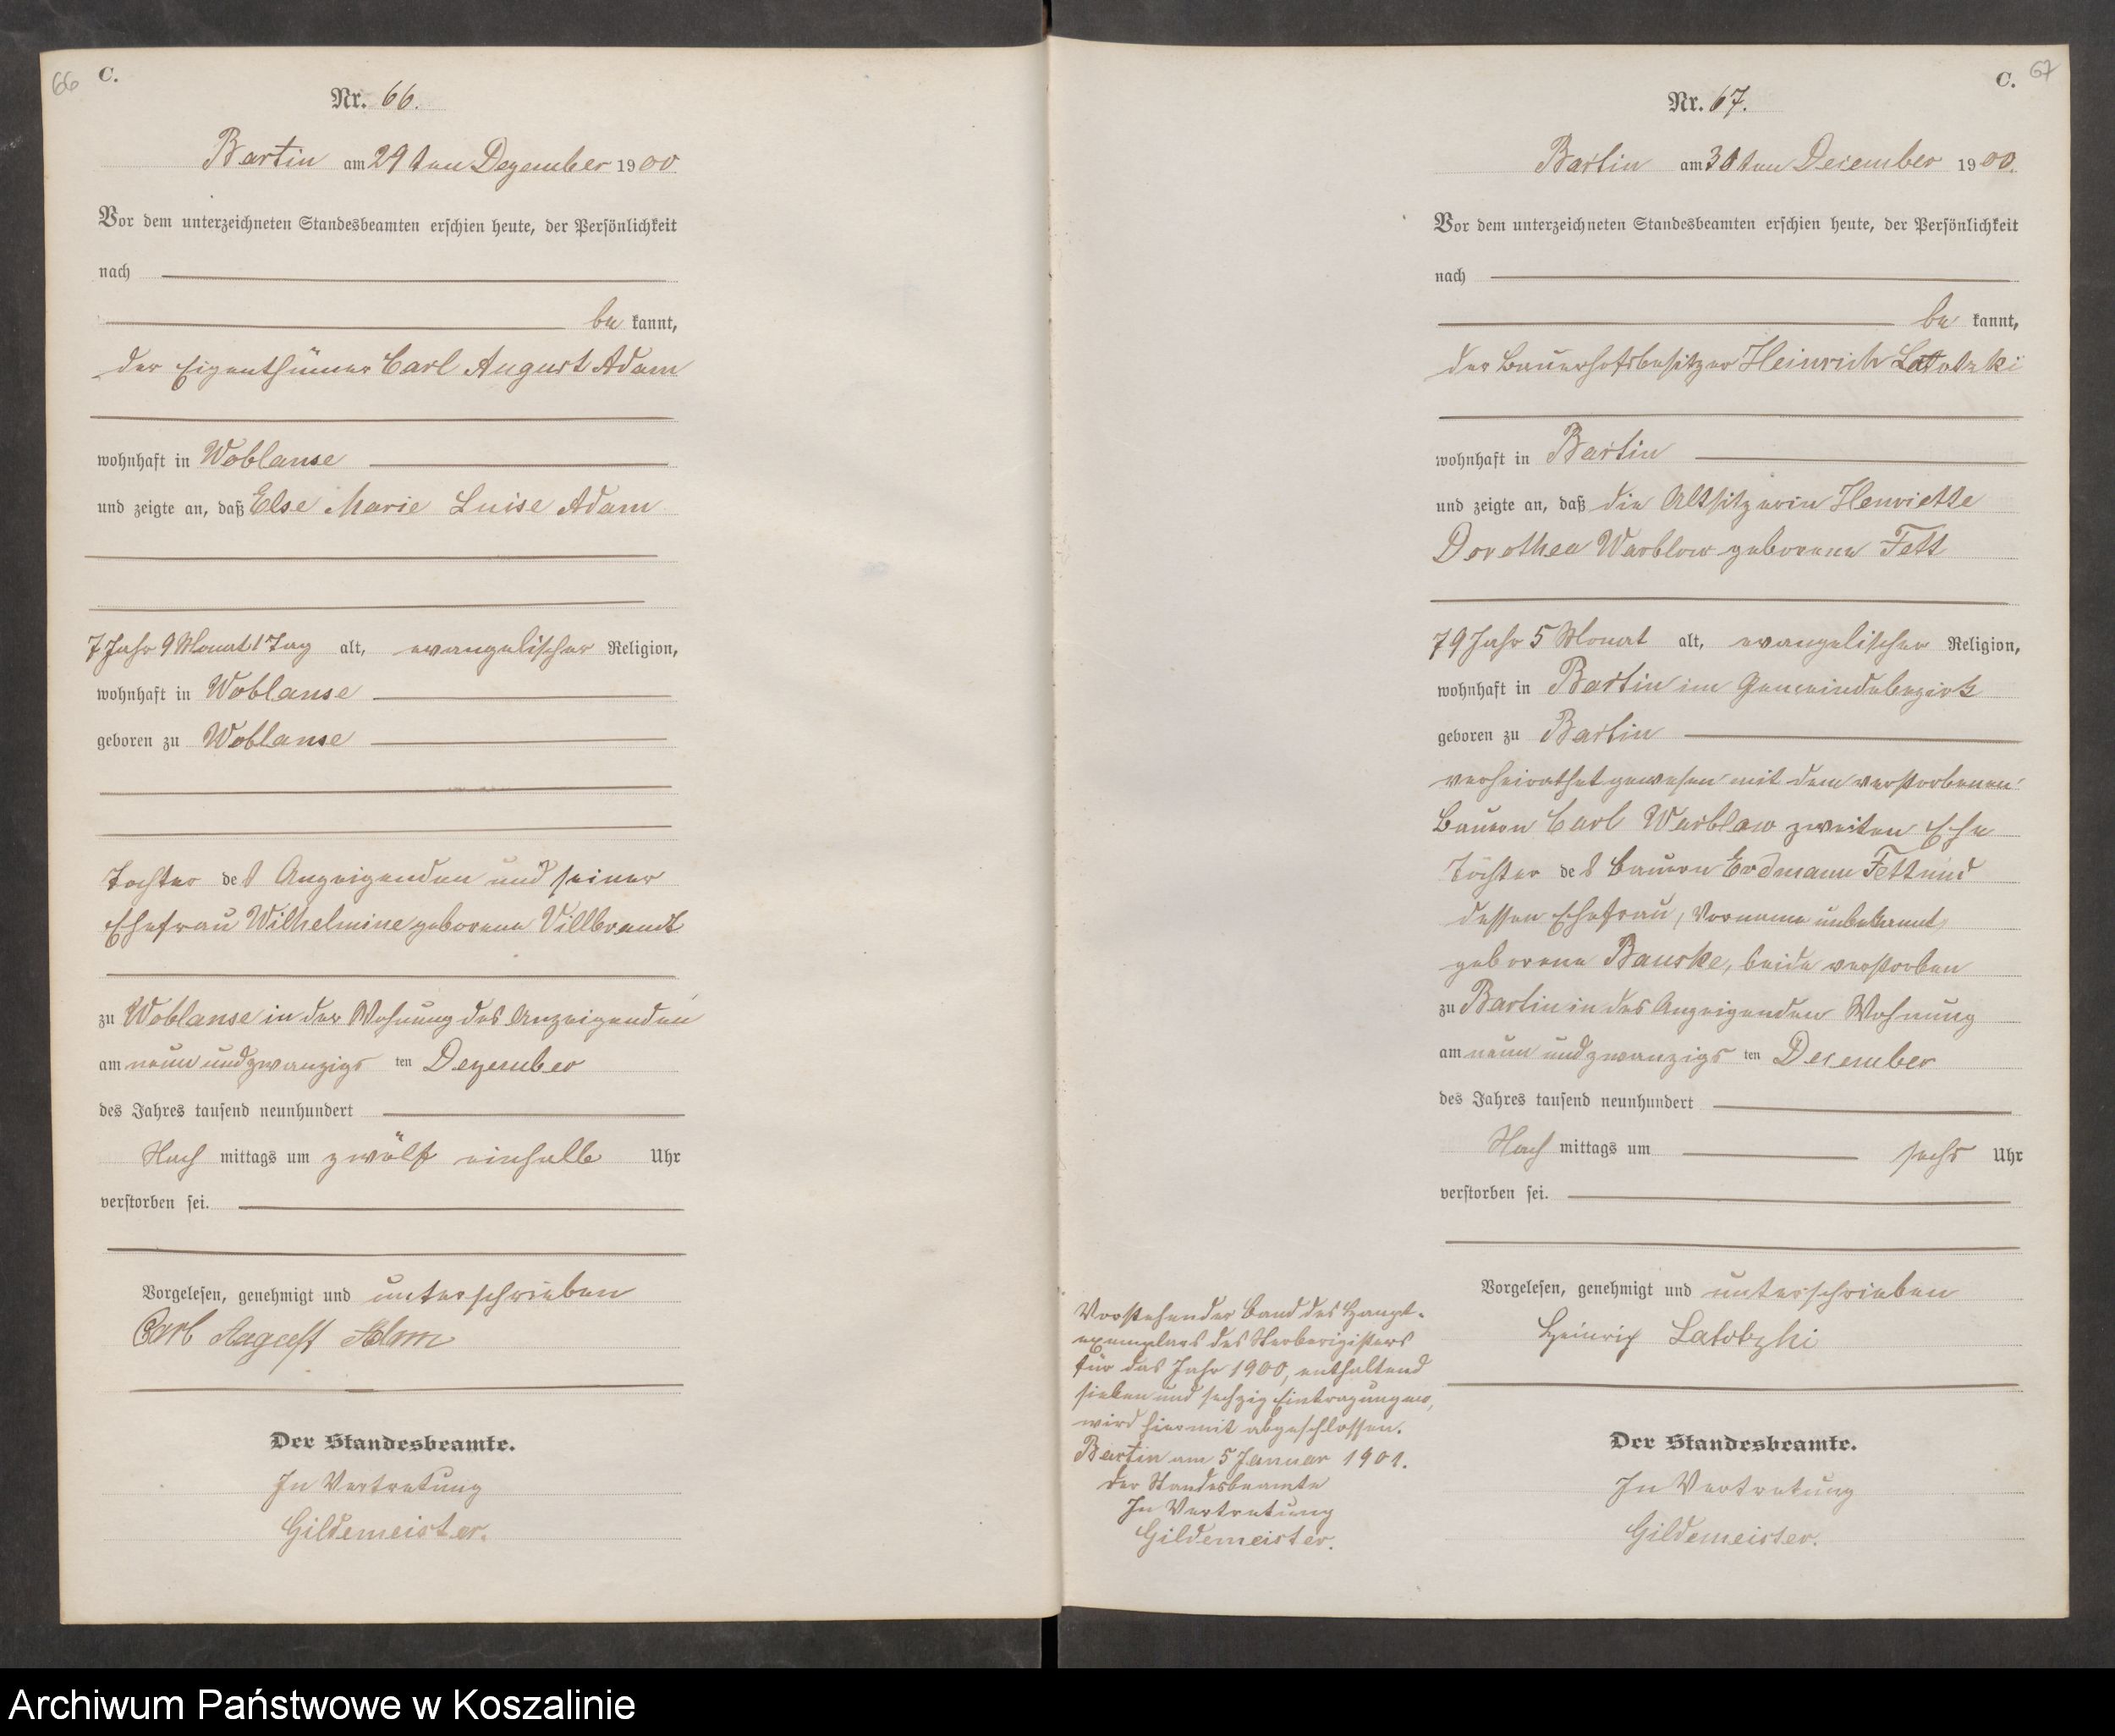 66
C.
Nr. 66.
Bartin am 29ten Dezember 1900.
Vor dem unterzeichneten Standesbeamten erschien heute, der Persönlichkeit
nach
be kannt,
der Eigenthümer Carl August Adam
wohnhaft in Woblanse
und zeigte an, daß Else Marie Luise Adam
7 Jahr 9 Monat 1 Tag alt, evangelischer Religion,
wohnhaft in Woblanse
geboren zu Woblanse
Tochter des Anzeigenden und seiner
Ehefrau Wilhelmine geborene Villbrandt
zu Woblanse in der Wohnung des Anzeigenden
am neun und zwanzigs ten Dezember
des Jahres tausend neunhundert
Nach mittags um zwölf einhalb Uhr
verstorben sei.
Vorgelesen, genehmigt und unterschrieben
Carl August Adam
Der Standesbeamte.
In Vertretung
Gildemeister.
67
C.
Nr. 67.
Bartin am 30ten December 1900.
Vor dem unterzeichneten Standesbeamten erschien heute, der Persönlichkeit
nach
be kannt,
der Bauerhofsbesitzer Heinrich Latotzki
wohnhaft in Bartin
und zeigte an, daß die Altsitzerin Henriette
Dorothea Warblow geborene Fett
79 Jahr 5 Monat alt, evangelischer Religion,
wohnhaft in Bartin im Gemeindebezirk
geboren zu Bartin
verheirathet gewesen mit dem verstorbenen
Bauern Carl Warblow zweiten Ehe
Tochter des Bauern Erdmann Fett und
dessen Ehefrau, Vorname unbekannt,
geborene Bauske, beide verstorben
zu Bartin in des Anzeigenden Wohnung
am neun und zwanzigs ten December
des Jahres tausend neunhundert
Nach mittags um sechs Uhr
verstorben sei.
Vorgelesen, genehmigt und unterschrieben
Heinrich Latotzki
Der Standesbeamte.
In Vertretung
Gildemeister.
Vorstehender Band des Haupt-
exemplars des Sterberegisters
für das Jahr 1900, enthaltend
sieben und sechzig Eintragungen,
wird hiermit abgeschlossen.
Bartin am 5 Januar 1901.
Der Standesbeamte
In Vertretung
Gildemeister.
Archiwum Państwowe w Koszalinie